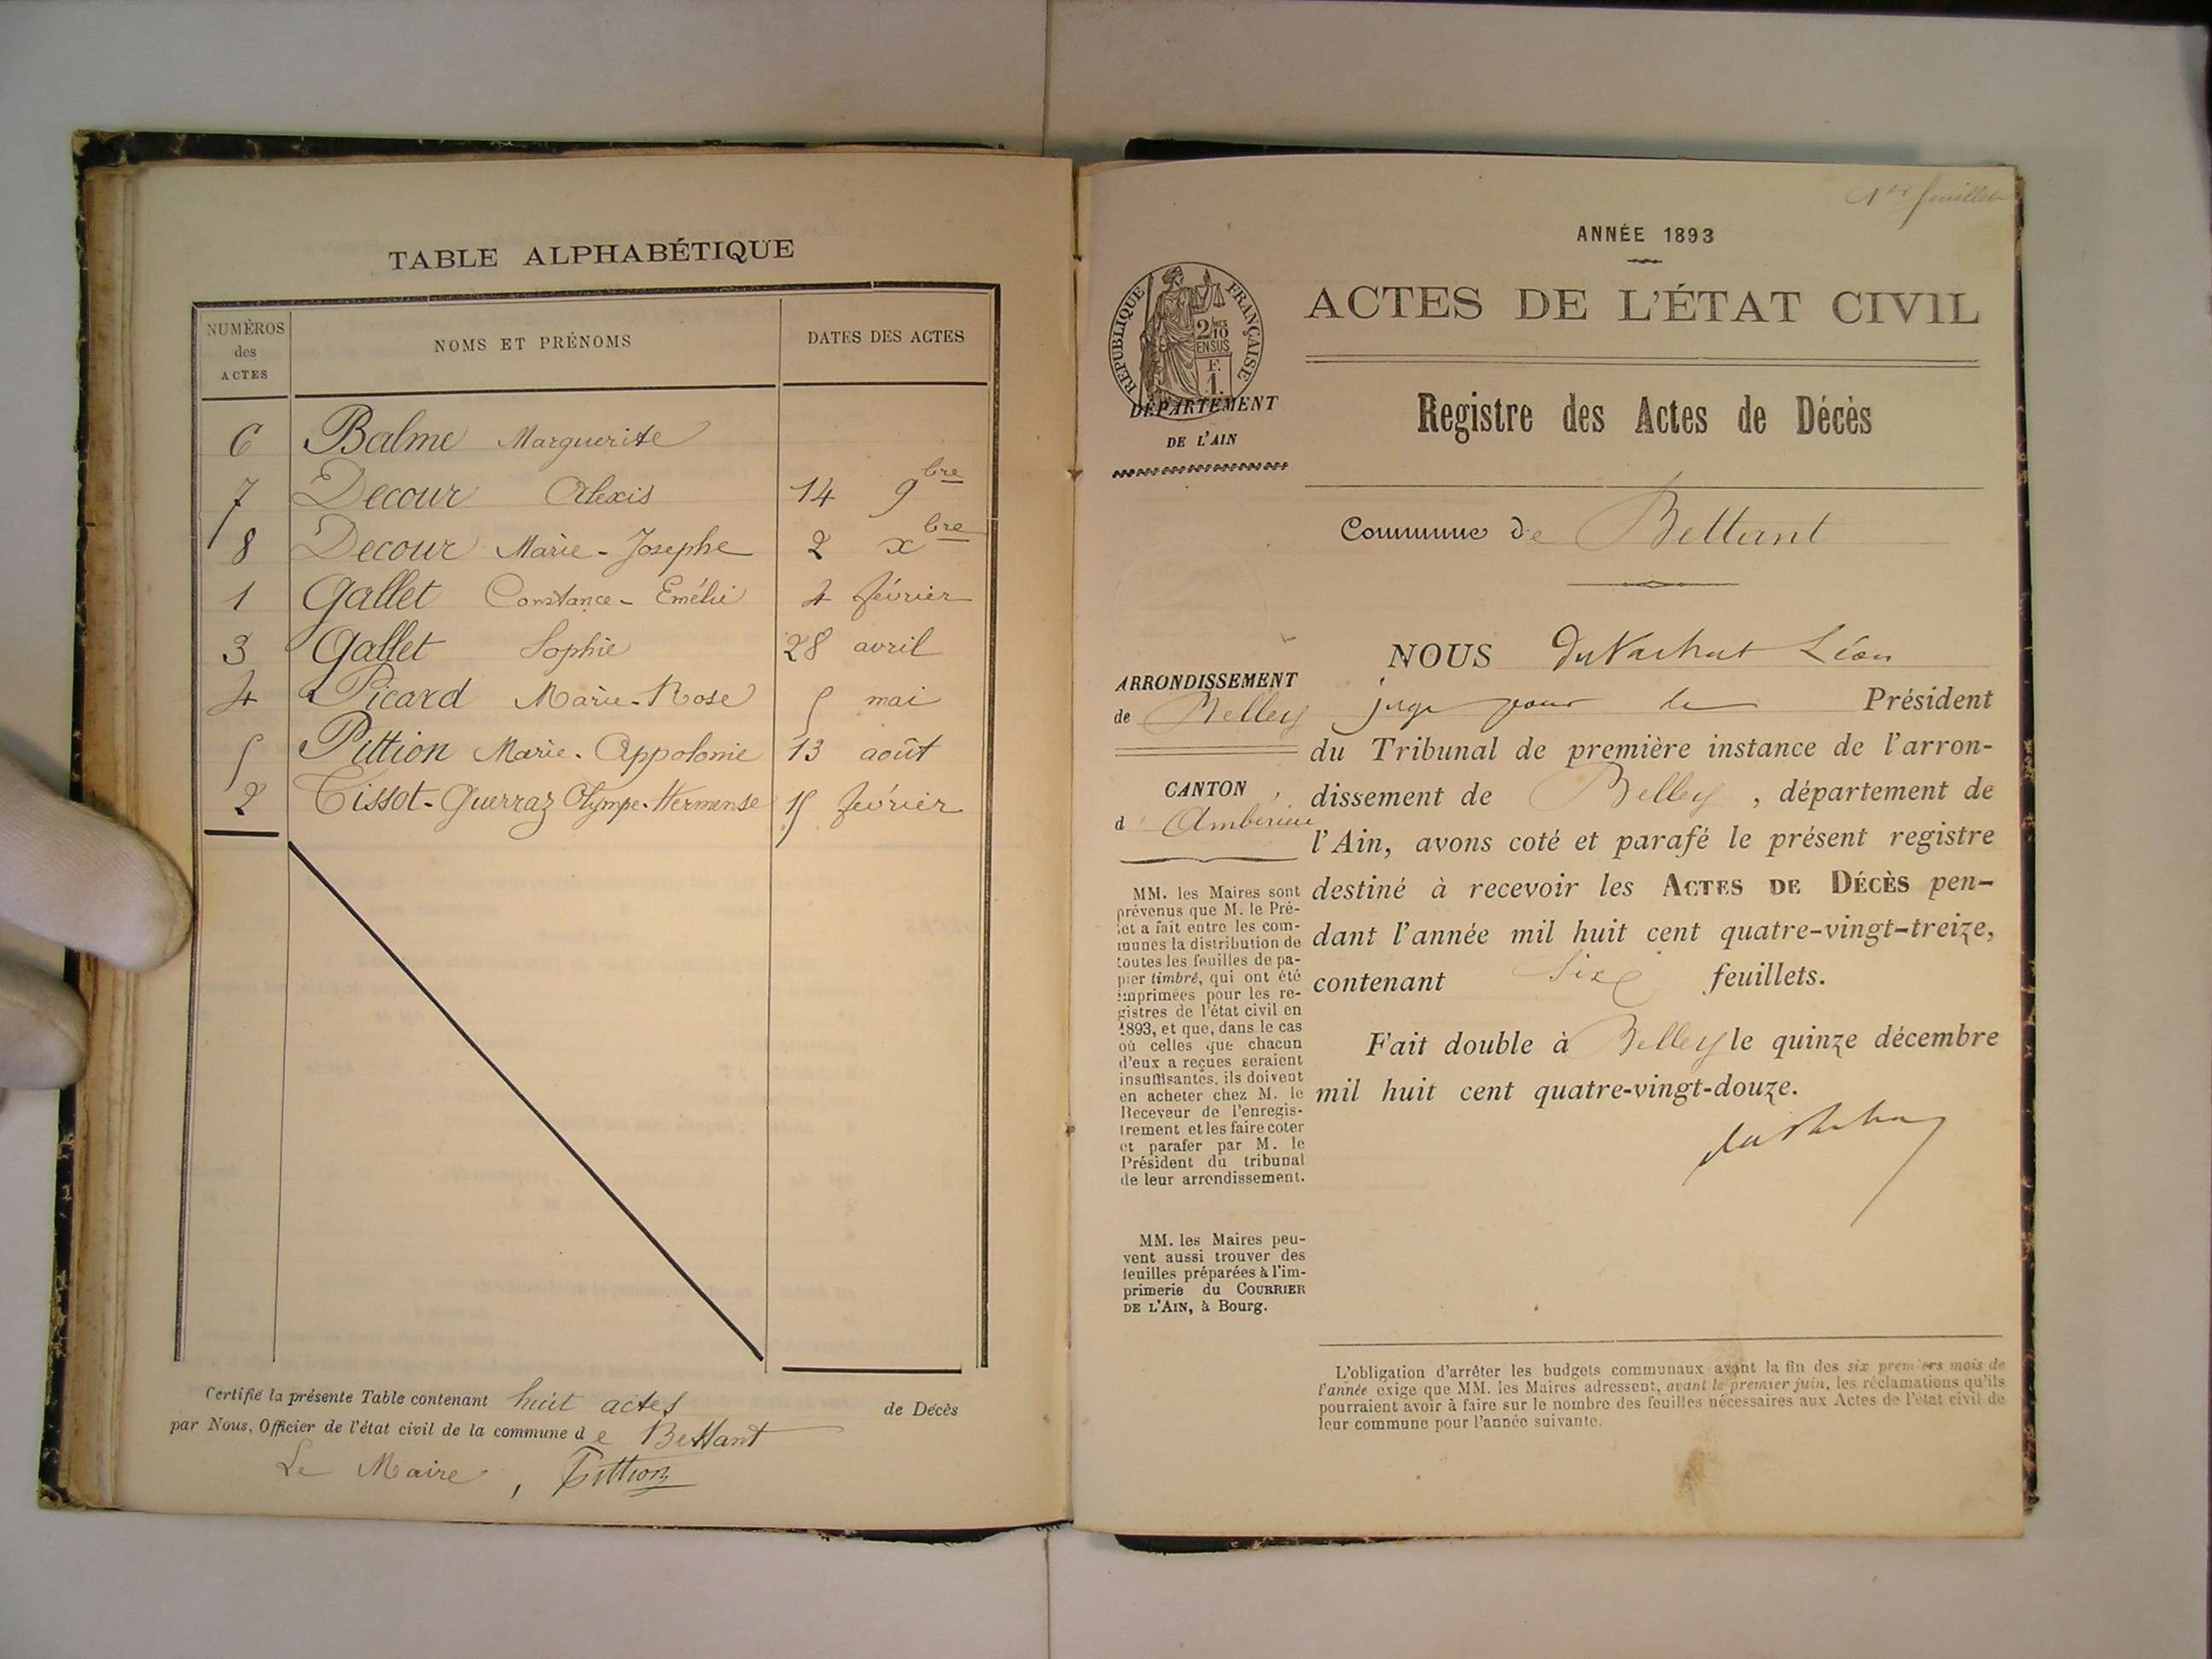 TABLE ALPHABÉTIQUE
NUMÉROS des ACTES NOMS ET PRÉNOMS DATES DES ACTES
6 Balme Marguerite
7 Decour Alexis 14 9bre
8 Decour Marie-Josephe 2 xbre
1 Gallet Constance-Emélie 4 février
3 Gallet Sophie 28 avril
4 Picard Marie-Rose 5 mai
5 Pittion Marie-Appolonie 13 août
2 Tissot-Guerraz Olympe-Hermense 15 février
Certifié la présente Table contenant huit actes de Décès
par Nous, Officier de l'état civil de la commune de Bettant
Le Maire, Pittion
1er feuillet
ANNÉE 1893
RÉPUBLIQUE FRANÇAISE
2/10 EN SUS
F. 1.
ACTES DE L'ÉTAT CIVIL
DÉPARTEMENT
DE L'AIN
Registre des Actes de Décès
Commune de Bettant
ARRONDISSEMENT
de Belley
CANTON
d'Ambérieu
MM. les Maires sont
prévenus que M. le Pré-
fet a fait entre les com-
munes la distribution de
toutes les feuilles de pa-
pier timbré, qui ont été
imprimées pour les re-
gistres de l'état civil en
1893, et que, dans le cas
où celles que chacun
d'eux a reçues seraient
insuffisantes, ils doivent
en acheter chez M. le
Receveur de l'enregis-
trement et les faire coter
et parafer par M. le
Président du tribunal
de leur arrondissement.
MM. les Maires peu-
vent aussi trouver des
feuilles préparées à l'im-
primerie du COURRIER
DE L'AIN, à Bourg.
NOUS Léon
juge pour le Président
du Tribunal de première instance de l'arron-
dissement de Belley, département de
l'Ain, avons coté et parafé le présent registre
destiné à recevoir les ACTES DE DÉCÈS pen-
dant l'année mil huit cent quatre-vingt-treize,
contenant six feuillets.
Fait double à Belley le quinze décembre
mil huit cent quatre-vingt-douze.
L'obligation d'arrêter les budgets communaux avant la fin des six premiers mois de
l'année exige que MM. les Maires adressent, avant le premier juin, les réclamations qu'ils
pourraient avoir à faire sur le nombre des feuilles nécessaires aux Actes de l'état civil de
leur commune pour l'année suivante.